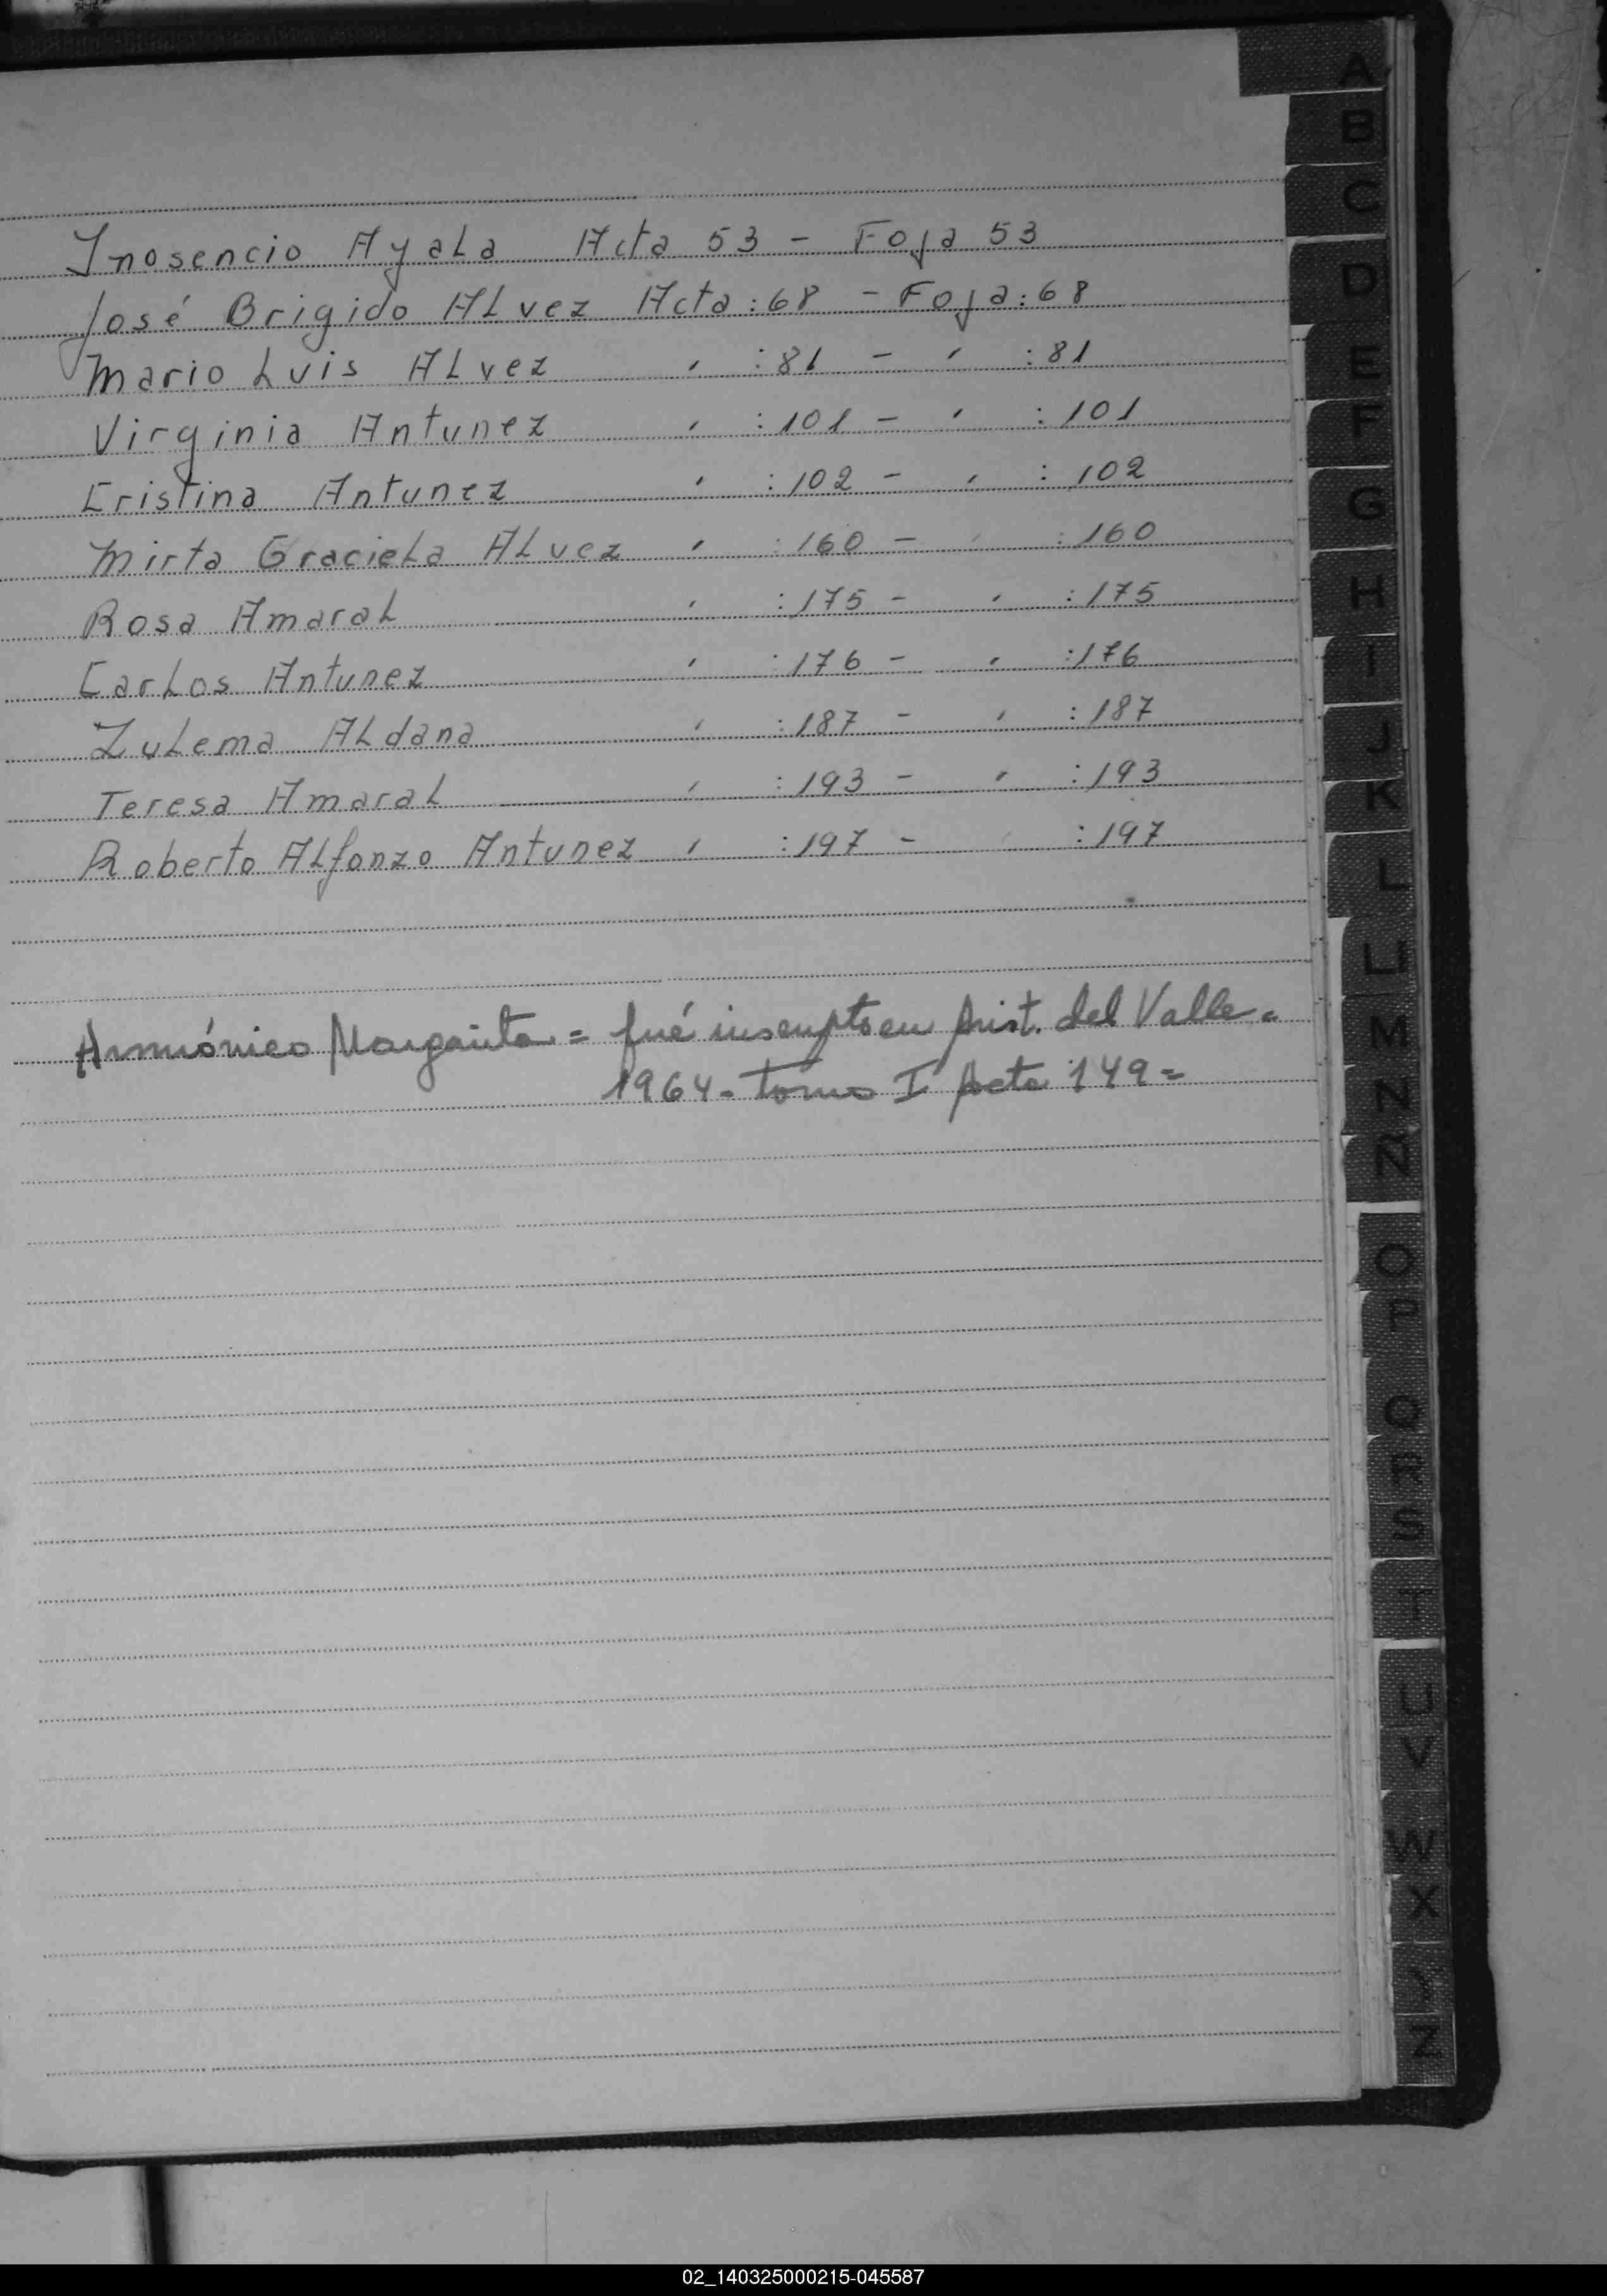 Inosencio Ayala Acta 53 - Foja 53
José Brigido Alvez Acta:68 - Foja:68
Mario Luis Alvez " :81 - " :81
Virginia Antunez " :101 - " :101
Cristina Antunez " :102 - " :102
Mirta Graciela Alvez " :160 - " :160
Rosa Amaral " :175 - " :175
Carlos Antunez " :176 - " :176
Zulema Aldana " :187 - " :187
Teresa Amaral " :193 - " :193
Roberto Alfonzo Antunez " :197 - " :197
Margarita = fué inscripto en Arist. del Valle.
1964- tomo I Acta 149=
A
B
C
D
E
F
G
H
I
J
K
L
LL
M
N
Ñ
O
P
Q
R
S
T
U
V
W
X
Y
Z
02_140325000215-045587